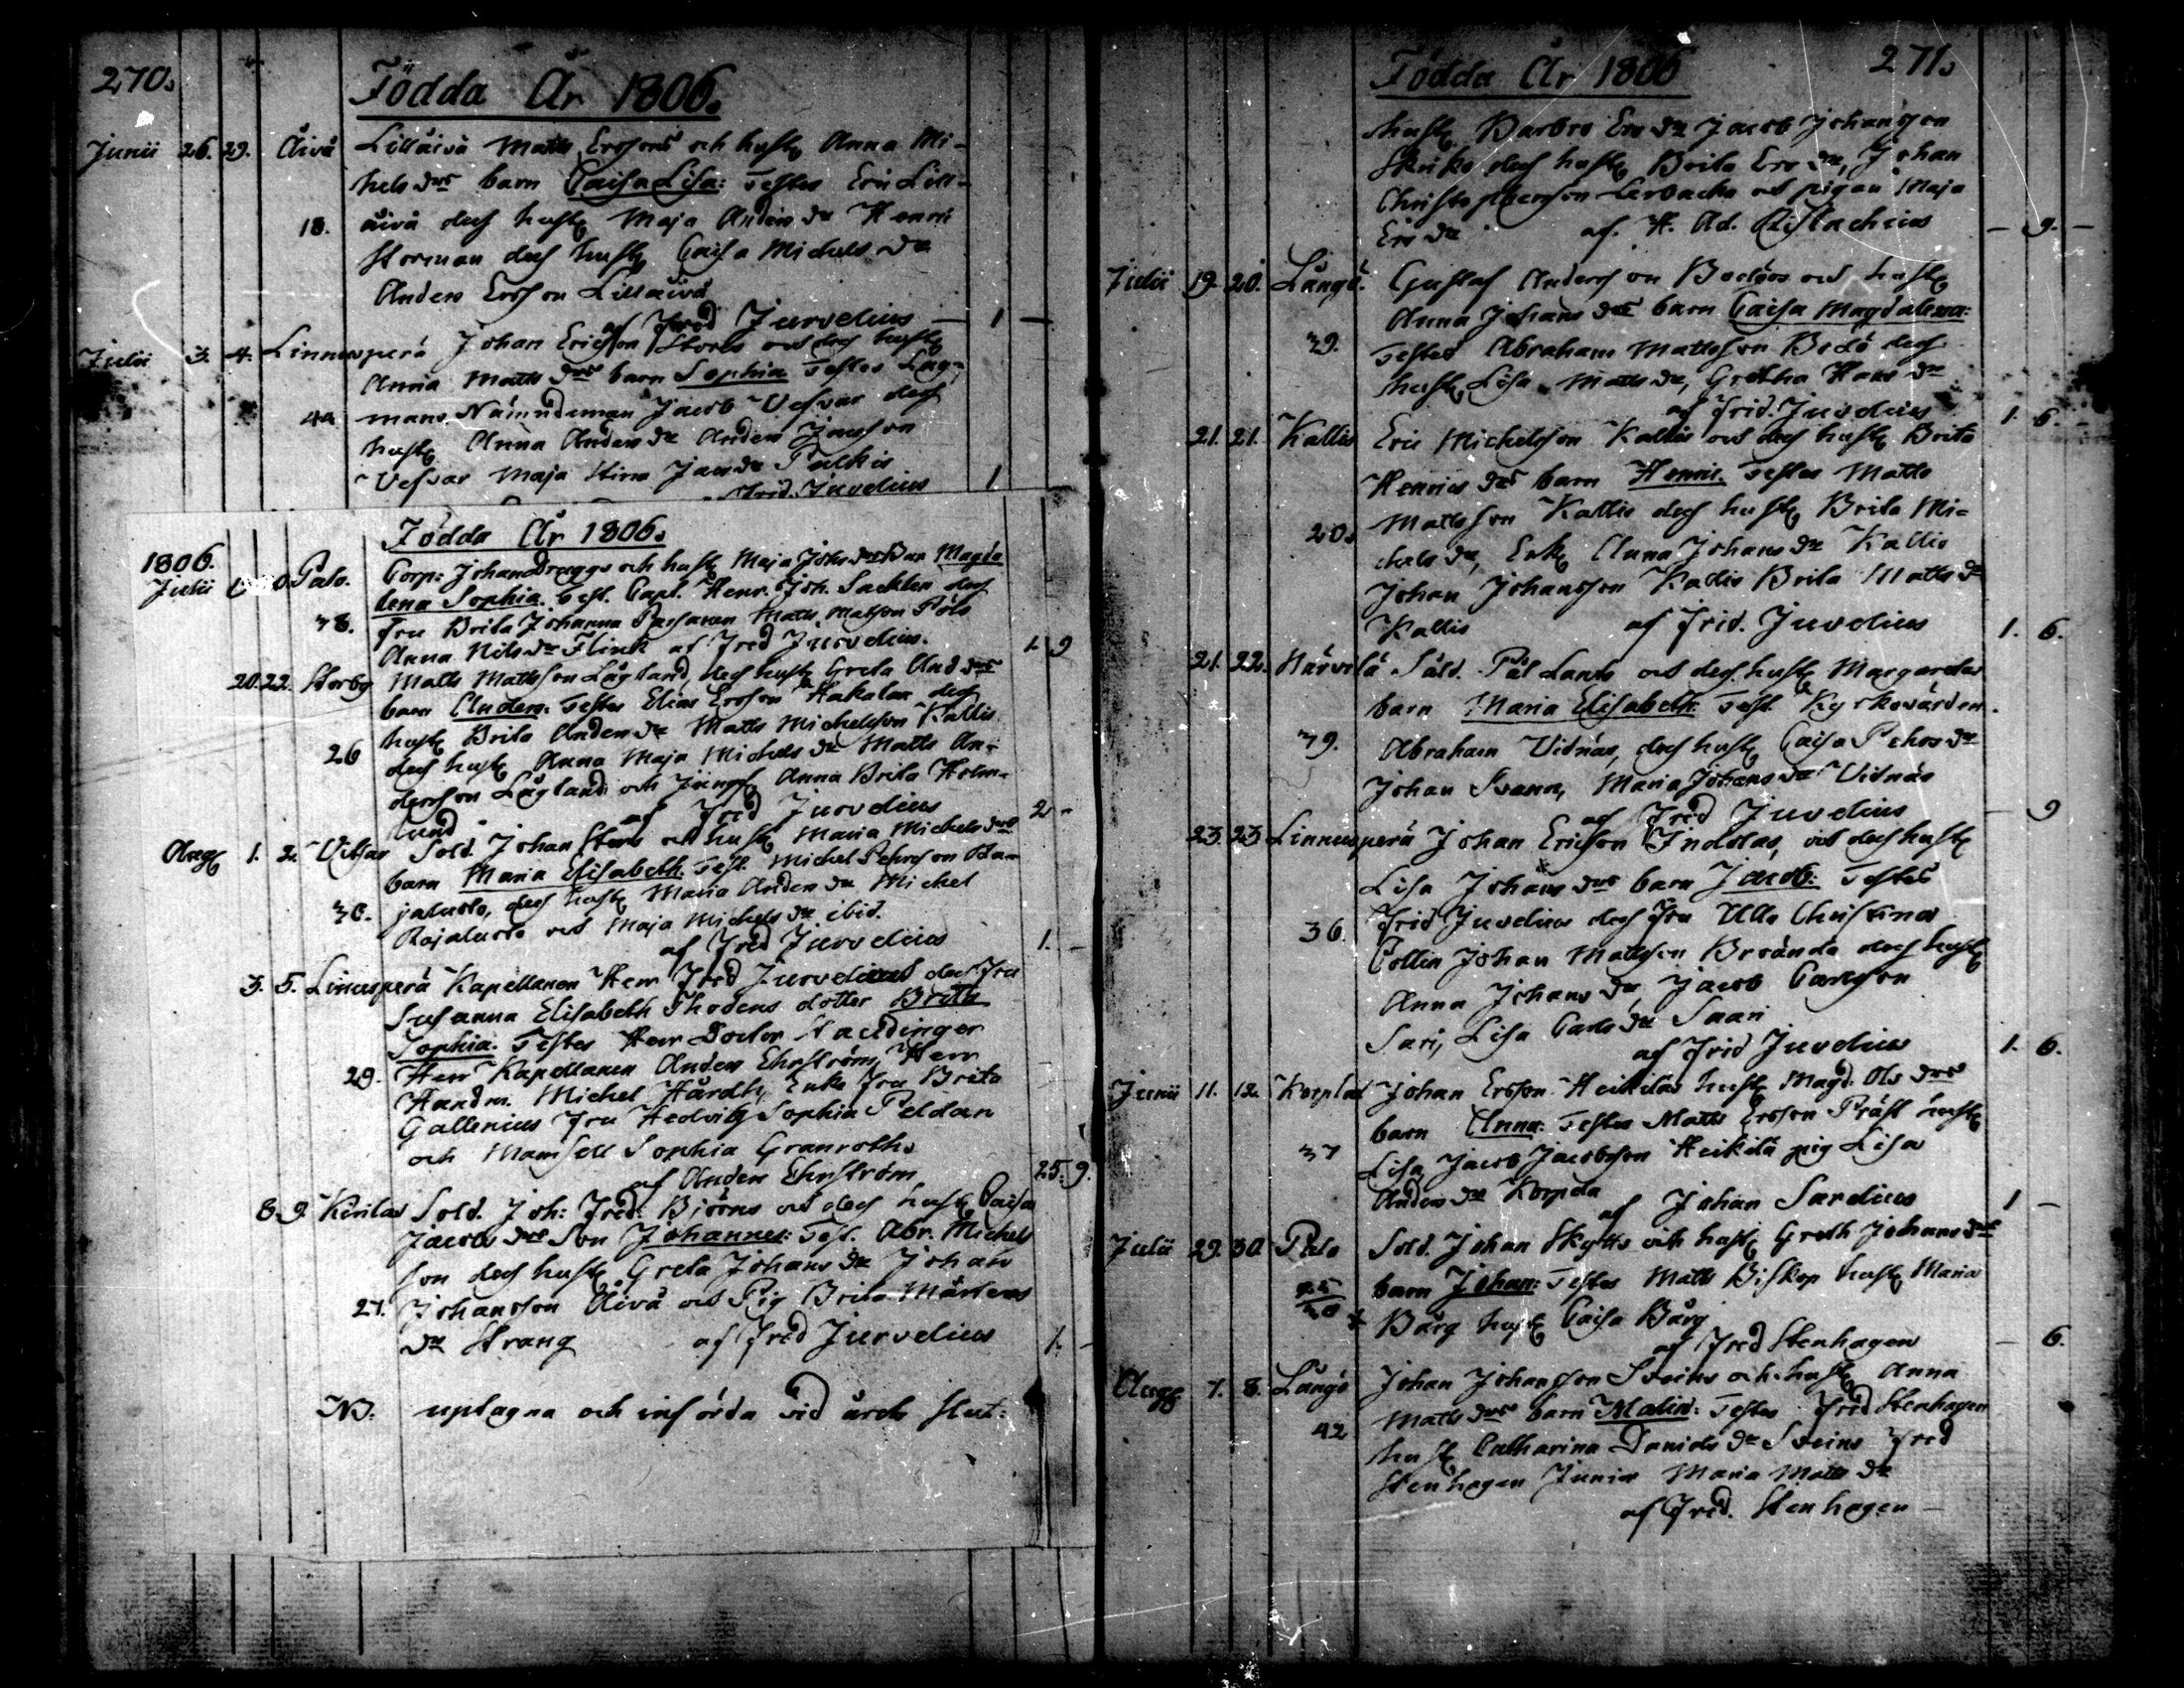 270.
Födda År 1806.
Junii 26. 29. Åivå Lillåivå Matts Erssons och hust Anna Mi-
hels drs barn Caisa Lisa: Testes Eric Lill-
18. åivå dess hust Maja Anders dr Henric
Storman dess hust Caisa Michels dr
Anders Ersson Lillåivå
af Fred Jurvelius — 1 —
Julii 3. 4. Linnusperä Johan Ericsson Stores och dess hust
Anna Matts drs barn Sophia Testes Lag-
44 mans Nämndeman Jacob Vesvar dess
hust Anna Anders dr Anders Jacsson
Vesvar Maja Stina Jacs dr Palkis
Frid. Juvelius 1
Födda År 1806.
1806.
Julii Palo. Corp: Johan Draggs och hust Maja Johs drs Barn Magda
lena Sophia. Test. Capt. Henr. Joh. Sacklen dess
38. Fru Brita Johanna Matts Matsson Pålo
Anna Nils dr Flink af Fred Jurvelius. 1. 9
20. 22. Storby Matts Mattsson Lågland, dess hust Greta And drs
barn Anders. Testes Elias Ersson Hakalax dess
hust Brita Anders dr Matts Michelsson Kallis
26 dess hust Anna Maja Michels dr Matts An-
dersson Lågland och Jungf Anna Brita Holm-
lund af Fred Jurvelius 2 -
Aug 1. 2. Vitsar Sold. Johan Stark och hust Maria Michels drs
barn Maria Elisabeth. Test. Michel Pehrsson Ra-
36. jaluoto, dess hust Maria Anders dr Michel
Rajaluoto och Maja Michels dr ibid.
af Fred Jurvelius 1. -
3. 5. Linusperä Kapellanen Herr Fred Jurvelius dess Fru
Susanna Elisabeth Thodens dotter Brita
Sophia. Testes Herr Doctor Staudinger
29. Herr Kapellanen Anders Ehrström, Herr
Handm. Michel Hårdh, Enke Fru Brita
Gallenius Fru Hedvig Sophia Peldan
och Mamsell Sophia Granroth
af Anders Ehrström 25. 9.
8. 9. Kivilax Sold. Joh: Fred: Björns och dess hust Caisa
Jacobs drs Son Johannes: Test. Abr. Michels
son dess hust Greta Johans dr Johan
27. Johansson Åivå och Pig Brita Mårtens
dr Strang af Fred Jurvelius 1. -
NB. uptagna och införda vid årets slut:
Födda År 1806 271.
hust Barbro Ers dr Jacob Johansson
dess hust Brita Ers dr, Johan
Christophersson Lerbacka och pigan Maja
Ers dr af. H. Ad. — 9. —
Julii 19. 20. Långö. Gustaf Andersson Bodöos och hust
Anna Johans drs barn Caisa Magdalena:
39. Testes Abraham Mattsson Bodö dess
hust Lisa Matts dr, Gretha Hans dr
af Frid. Juvelius 1. 6.
21. 21. Kallis Eric Michelsson Kallis och dess hust Brita
Henrics drs barn Henric. Testes Matts
20. Mattsson Kallis dess hust Brita Mi-
chels dr, Enk Anna Johans dr Kallis
Johan Johansson Kallis Brita Matts dr
Kallis af Frid. Juvelius 1. 6.
21. 22. Närvilä Sold. Pål Lants och dess hust Margaretas
barn Maria Elisabeth Test Kyrkovärden.
39. Abraham Vidnäs, dess hust Caisa Pehrs dr
Johan Svann, Maria Johans dr Vidnäs
af Frid Juvelius 9
23. 23. Linnusperä Johan Ericson Indolas, och dess hust
Lisa Johans drs barn Jacob: Testes
36. Frid Juvelius dess Fru Ulla Christina
Collin Johan Mattsson Brända dess hust
Anna Johans dr, Jacob Carlsson
Sari, Lisa Carls dr Saari
af Frid Juvelius 1. 6.
Junii 11. 12. Korplax Johan Ersson Heikilas hust Magd. Ols drs
barn Anna: Testes Matts Ersson Präst hust
37 Lisa, Jacob Jacobsson Heikilä pig Lisa
Anders dr Korpela af Johan Sardius 1 —
Julii 29. 30. Palo Sold. Johan Skytts och hust Greth Johans drs
barn Johan: Testes Matts Biskop hust Maria
Bårg hust Caisa Bårg
af Fred Stenhagen — 6.
Aug 7. 8. Långö Johan Johansson Sveins och hust Anna
42 Matts drs barn Malin: Testes Fred Stenhagen
hust Catharina Daniels dr Sveins Fred
Stenhagen Junior Maria Matts dr
af Fred. Stenhagen —